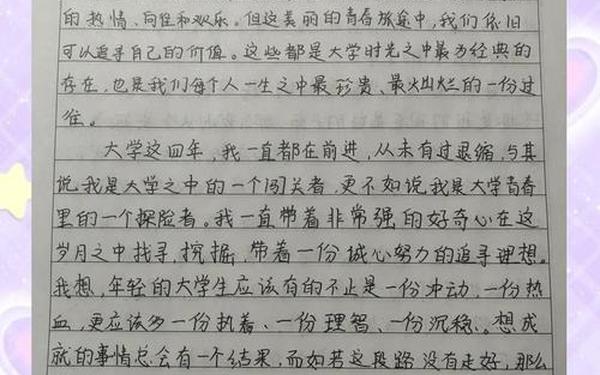 的热情、向往和欢乐。但这美丽的青春旅途中，我们依旧
可以追寻自己的价值。这些都是大学时光之中最为经典的
存在，也是我们每个人一生之中最珍贵、最灿烂的一份过
往。
大学这四年，我一直都在前进，从未有过退缩，与其
说我是大学之中的一个闯关者，更不如说我是大学青春
里的一个探险者。我一直带着非常强的好奇心在这
岁月之中找寻，挖掘，带着一份诚心努力的追寻理想。
我想，年轻的大学生应该有的不止是一份冲动，一份热
血，更应该多一份执着、一份理智、一份沉稳。想成
就的事情总会有一个结果，而如若这段路没有走好，那么